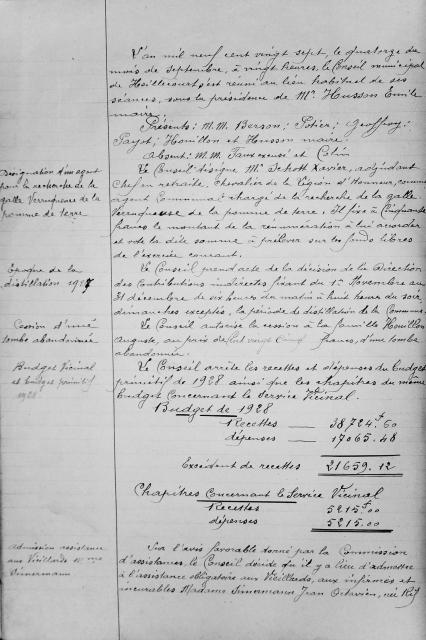 L'an mil neuf cent vingt sept, le quatorze du
mois de Septembre, à vingt heures, le Conseil municipal
de Hoéllecourt s'est réuni au lieu habituel de ses
séances, sous la présidence de Mr. Husson Emile
maire.
Présents: M.M. Berson; Potier; Geoffroy;
Payot; Houillon et Husson maire.
Absent: M.M. excusé et Colin
Désignation d'un agent
pour la recherche de la
galle Verruqueuse de la
pomme de terre
Le Conseil désigne Mr. Schott Xavier, adjudant
Chef en retraite, Chevalier de la Légion d'Honneur, comme
agent Communal chargé de la recherche de la galle
Verruqueuse de la pomme de terre; Il fixe à Cinquante
francs le montant de la rémunération à lui accorder
et vote la dite somme à prélever sur les fonds libres
de l'exercice courant.
Epoque de la
distillation 1927
Le Conseil prend acte de la décision de la Direction
des Contributions indirectes fixant du 1er Novembre au
31 décembre de six heures du matin à huit heures du soir,
dimanches exceptés, la période de distillation de la Commune.
Cession d'une
tombe abandonnée
Le Conseil autorise la cession à la famille Houillon
Auguste, au prix de vingt Cinq francs, d'une tombe
abandonnée.
Budget Vicinal
et budget primitif
1928
Le Conseil arrête les recettes et dépenses du budget
primitif de 1928 ainsi que les chapitres du même
budget Concernant le Service Vicinal.
Budget de 1928
Recettes — 38724f.60
dépenses — 17065.48
Excédent de recettes 21659.12
Chapitres Concernant le Service Vicinal
Recettes 5215f00
dépenses 5215.00
Admission assistance
aux Vieillards Mme
Simermann
Sur l'avis favorable donné par la Commission
d'assistance, le Conseil décide qu'il y a lieu d'admettre
à l'assistance obligatoire aux Vieillards, aux infirmes et
incurables Madame Simermann Jean Octavien, née